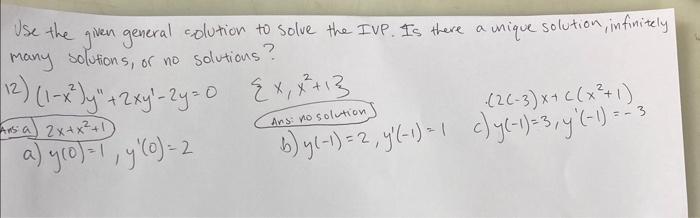 Use the given general solution to solve the IVP. Is there a unique solution, infinitely
many solutions, or no solutions?
12) (1-x²)y"+2xy'-2y=0 {x, x²+1}
Ans: a) 2x+x²+1
a) y(0)=1, y'(0)=2
Ans: no solution
b) y(-1)=2, y'(-1)=1
(2C-3)x+C(x²+1)
c) y(-1)=3, y'(-1)=-3